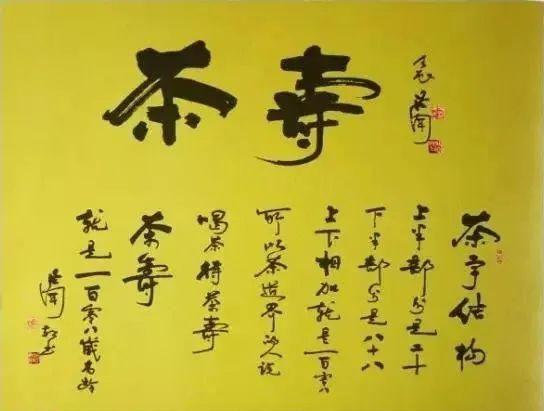 茶壽
茶字结构
上半部分是二十
下半部分是八十八
上下相加就是一百零八
所以茶道界的人说
喝茶得茶壽
茶壽
就是一百零八歲高龄